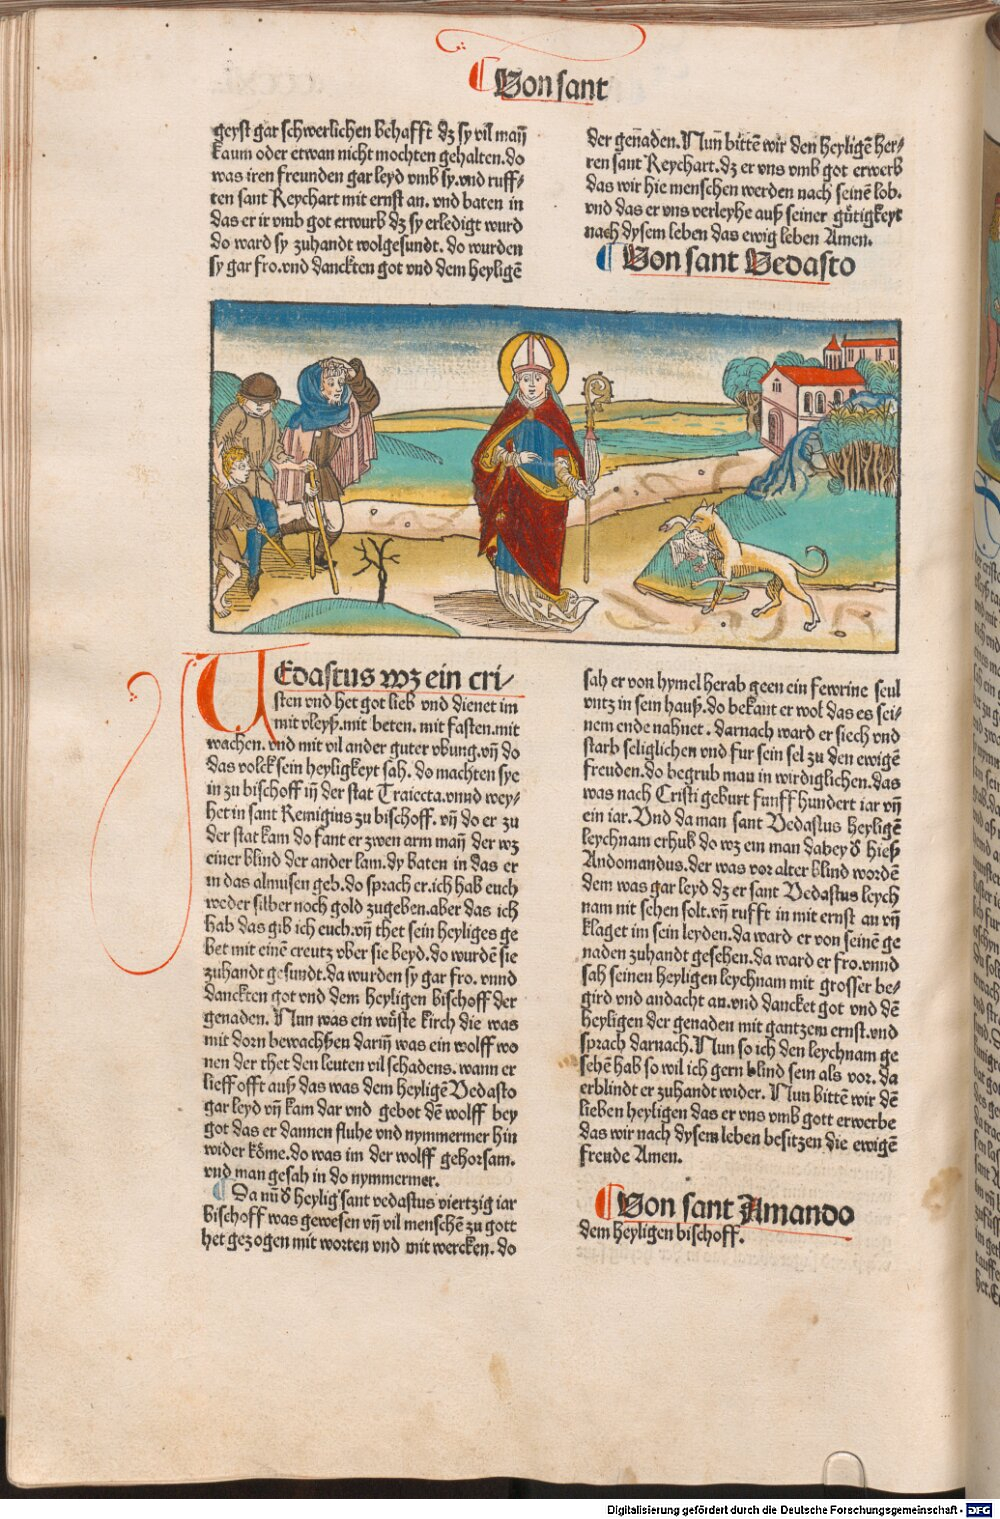 Von sant
geyst gar schwerlichen behafft dz sy vil mañ
kaum oder etwan nicht mochten gehalten. do
was iren freunden gar leyd vmb sy. vnd ruff-
ten sant Reychart mit ernst an. vnd baten in
das er ir vmb got erwurb dz sy erledigt wurd
do ward sy zuhandt wolgesundt. do wurden
sy gar fro. vnd danckten got vnd dem heyligē
der geñaden. Nuñ bittē wir den heyligē her-
ren sant Reychart. dz er vns vmb got erwerb
das wir hie menschen werden nach seinē lob.
vnd das er vns verleyhe auß seiner gütigkeyt
nach dysem leben das ewig leben Amen.
Von sant Vedasto
VEdastus wz ein cri-
sten vnd het got lieb vnd dienet im
mit vleyß. mit beten. mit fasten. mit
wachen. vnd mit vil ander guter vbung. vñ do
das volck sein heyligkeyt sah. do machten sye
in zu bischoff iñ der stat Traiecta. vnnd wey-
het in sant Remigius zu bischoff. vñ do er zu
der stat kam do fant er zwen arm mañ der wz
einer blind der ander lam. dy baten in das er
in das almusen geb. do sprach er. ich hab euch
weder silber noch gold zugeben. aber das ich
hab das gib ich euch. vñ thet sein heyliges ge
bet mit einē creutz vber sie beyd. do wurdē sie
zuhandt gesundt. da wurden sy gar fro. vnnd
danckten got vnd dem heyligen bischoff der
genaden. Nun was ein wüste kirch die was
mit dorn bewachßen dariñ was ein wolff wo
nen der thet den leuten vil schadens. wann er
lieff offt auß das was dem heyligē Vedasto
gar leyd vñ kam dar vnd gebot dē wolff bey
got das er dannen fluhe vnd nymmermer hin
wider kōme. do was im der wolff gehorsam.
vnd man gesah in do nymmermer.
Da nū d̄ heylig sant vedastus viertzig iar
bischoff was gewesen vñ vil menschē zu gott
het gezogen mit worten vnd mit wercken. do
sah er von hymel herab geen ein fewrine seul
vntz in sein hauß. do bekant er wol das es sei-
nem ende nahnet. darnach ward er siech vnd
starb seliglichen vnd fur sein sel zu den ewigē
freuden. do begrub man in wirdiglichen. das
was nach Cristi geburt funff hundert iar vñ
ein iar. Vnd da man sant Vedastus heyligē
leychnam erhub do wz ein man dabey d̄ hieß
Andomandus. der was vor alter blind wordē
dem was gar leyd dz er sant Vedastus leych
nam nit sehen solt. vñ rufft in mit ernst an vñ
klaget im sein leyden. da ward er von seinē ge
naden zuhandt gesehen. da ward er fro. vnnd
sah seinen heyligen leychnam mit grosser be-
gird vnd andacht an. vnd dancket got vnd dē
heyligen der genaden mit gantzem ernst. vnd
sprach darnach. Nun so ich den leychnam ge
sehē hab so wil ich gern blind sein als vor. da
erblindt er zuhandt wider. Nun bittē wir dē
lieben heyligen das er vns vmb gott erwerbe
das wir nach dysem leben besitzen die ewigē
freude Amen.
Von sant Amando
dem heyligen bischoff.
Digitalisierung gefördert durch die Deutsche Forschungsgemeinschaft - DFG